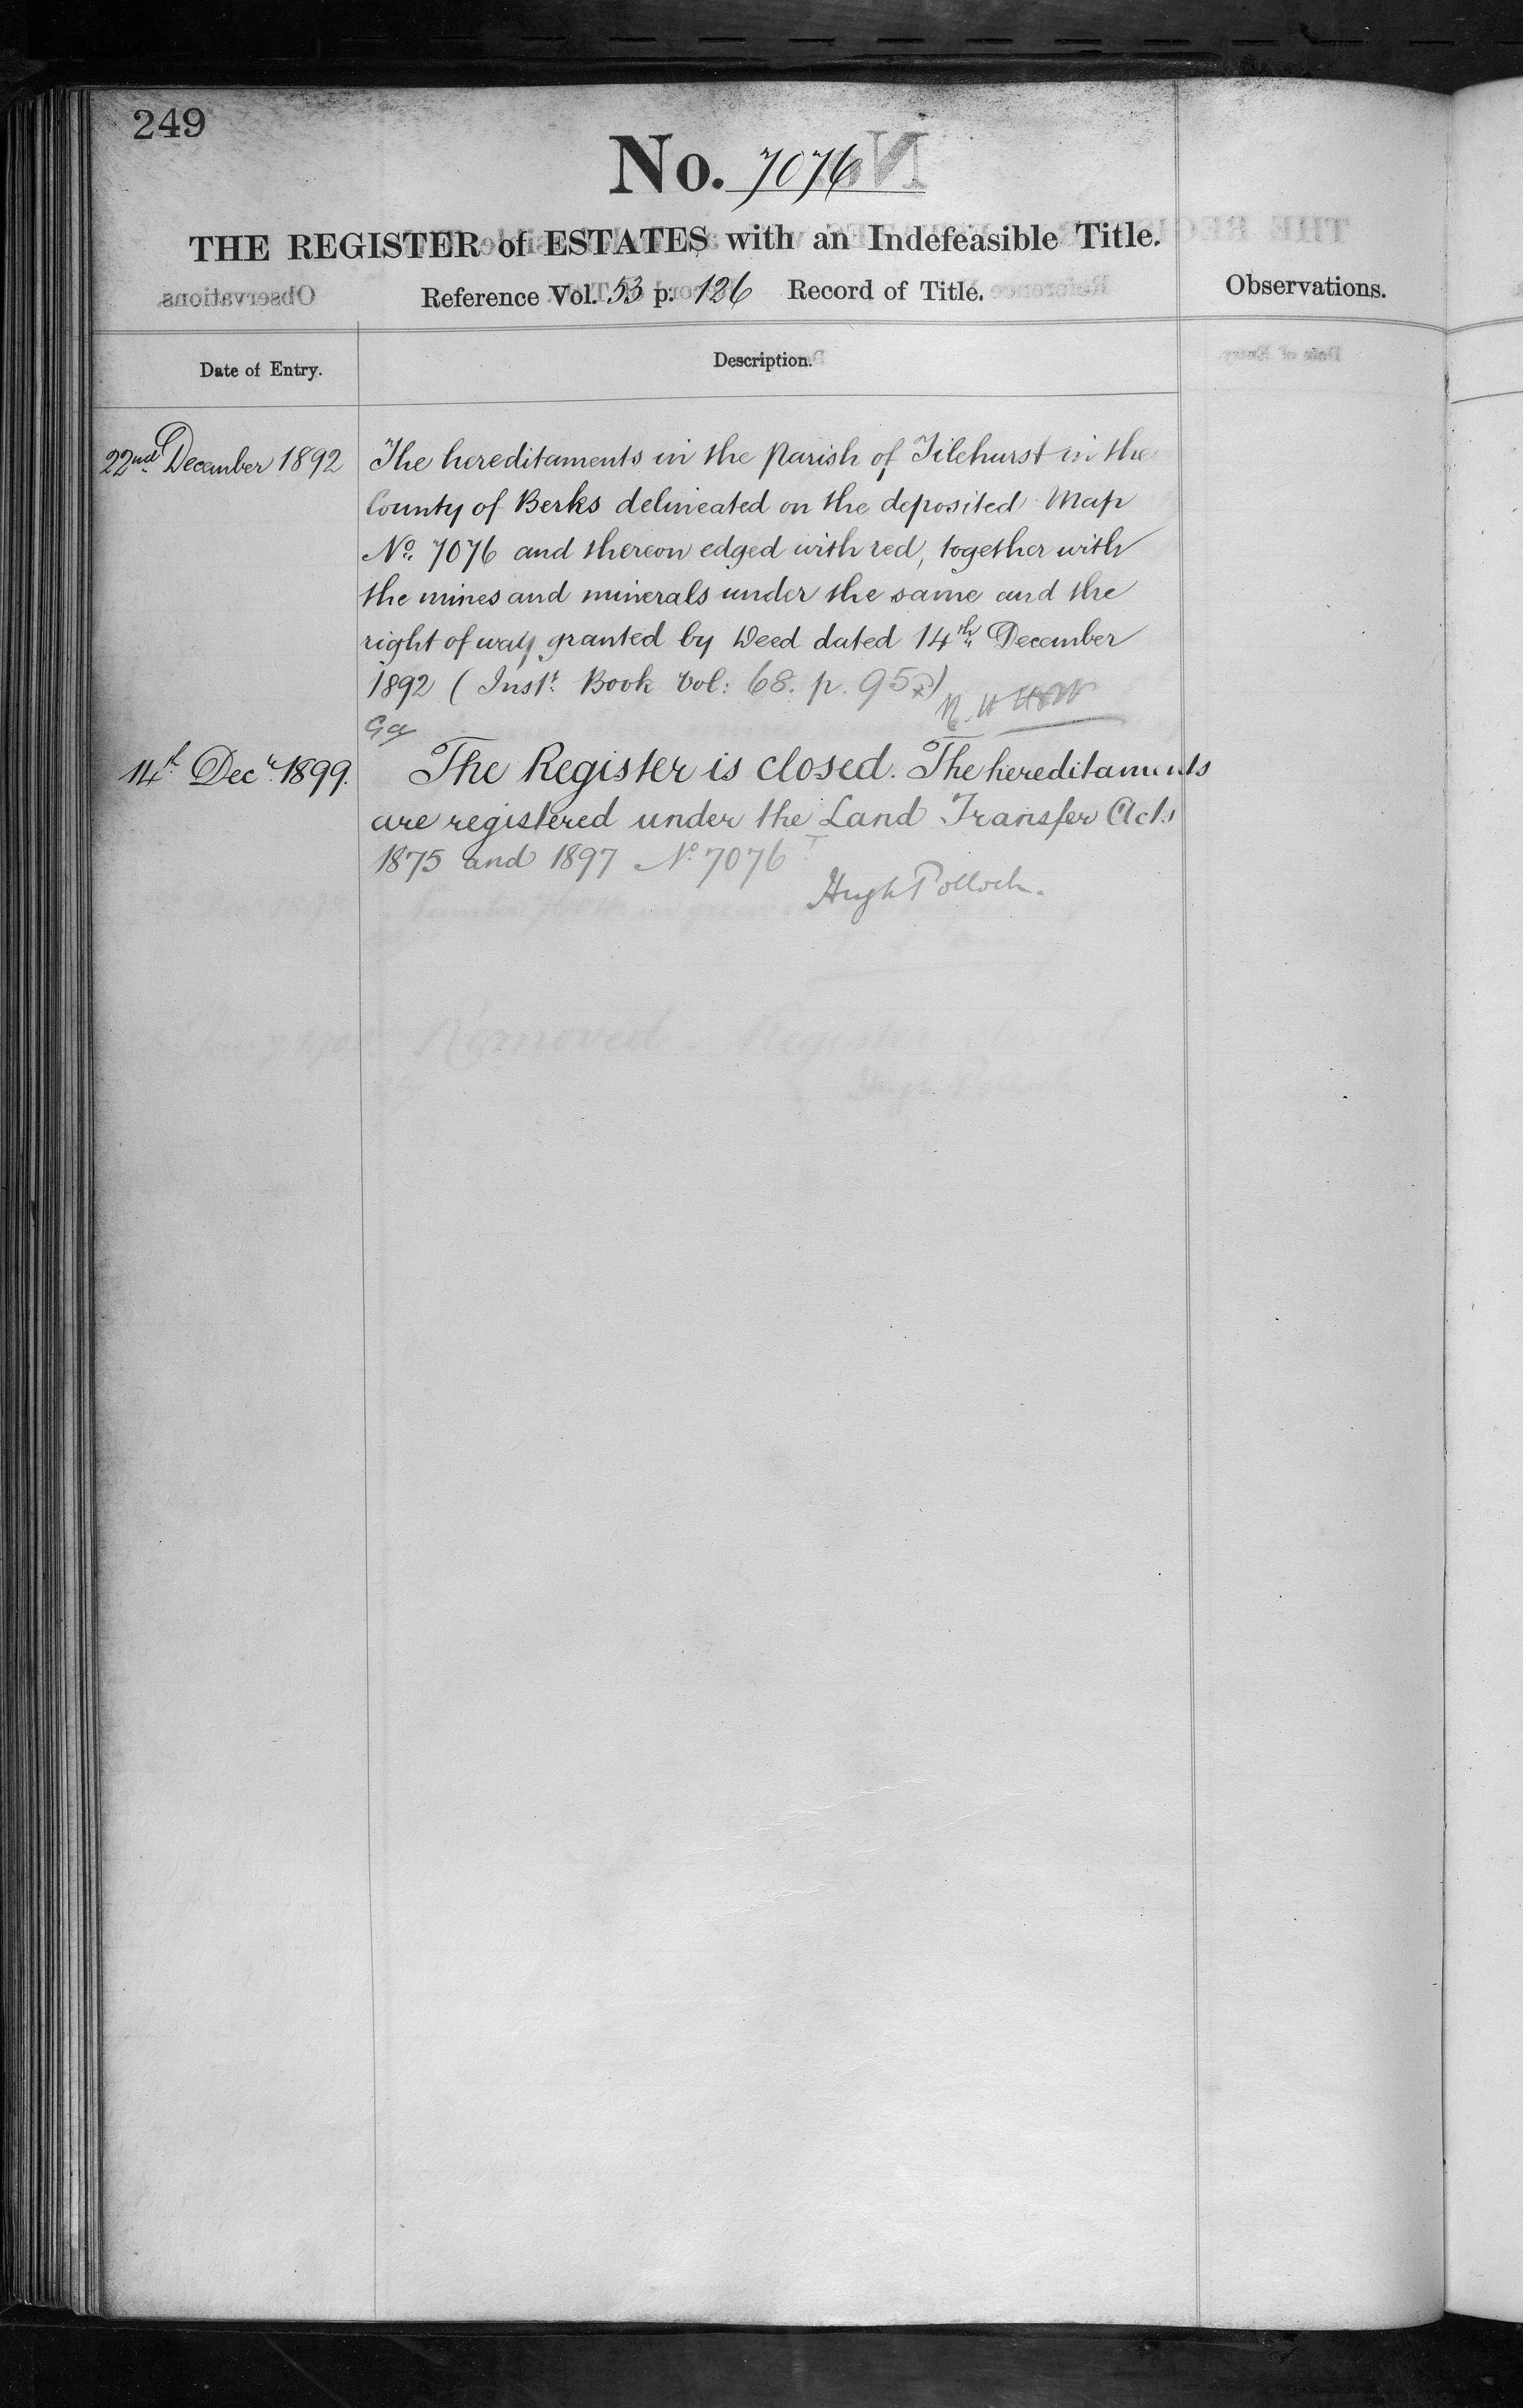 249
No. 7076
THE REGISTER of ESTATES with an Indefeasible Title.
Reference Vol. 53 p. 126 Record of Title.
Observations.
Date of Entry.
Description.
22nd December 1892
The hereditaments in the Parish of Tilehurst in the
County of Berks delineated on the deposited Map
No. 7076 and thereon edged with red, together with
the mines and minerals under the same and the
right of way granted by Deed dated 14th December
1892 (Inst. Book Vol: 68. p. 95)
14th Decr. 1899.
The Register is closed. The hereditaments
are registered under the Land Transfer Acts
1875 and 1897 No. 7076
Hugh Pollock.